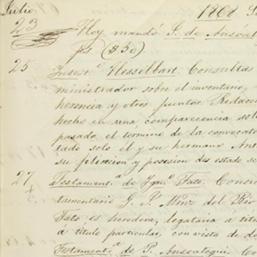 Julio 1868
23 Hoy mandó P. de Ansoat
ps ($50)
25 Hesselbart. Consultas
ministrador sobre el inventario,
herencia y otros puntos Redacc
hecho en una comparecencia est
pasado, el termino de la convocat
tado solo el y su hermano Ant
su filiacion y posesion del estado
27 Testament.ª de Ygn.º Consu
tamentario J. P. del Rio
es heredera, legataria á titu
á titulo particular, con vista de d
Testament.ª de P. Ansoategui Co